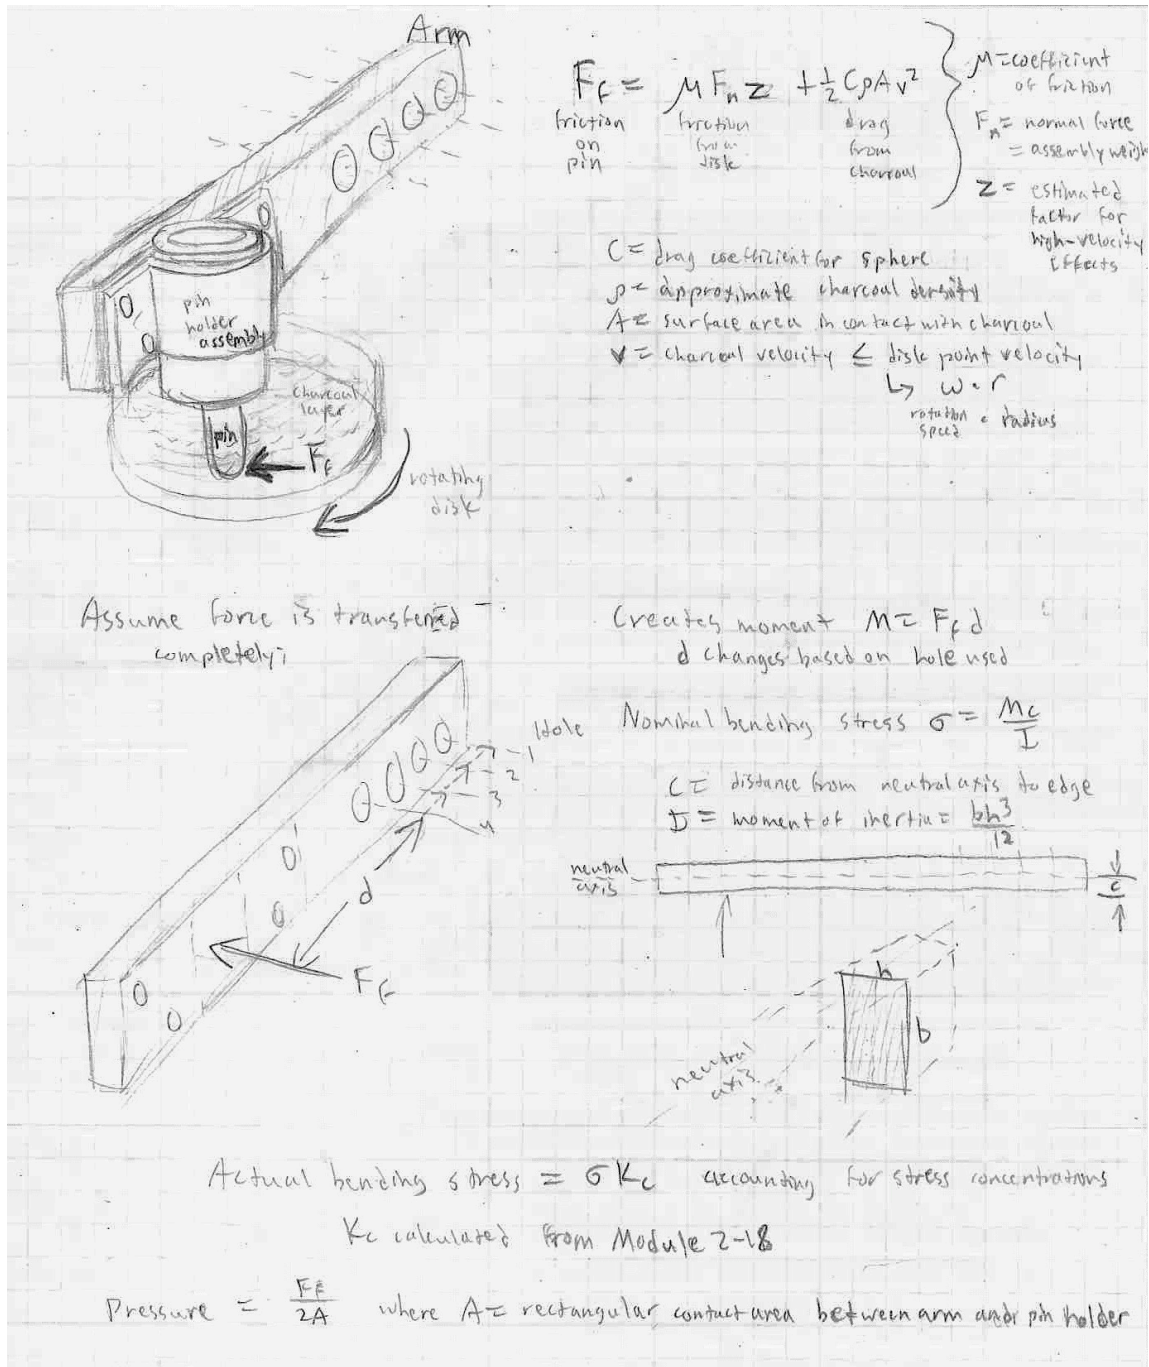 Arm
F_f = μF_n z + ½CρAv²
friction on pin
friction from disk
drag from charcoal
μ = coefficient of friction
F_n = normal force
= assembly weigh
z = estimated factor for high-velocity effects
C = drag coefficient for sphere
ρ = approximate charcoal density
A = surface area in contact with charcoal
v = charcoal velocity ≤ disk point velocity
↳ ω · r
rotation speed · radius
pin holder assembly
charcoal layer
pin
F_f
rotating disk
Assume force is transferred
completely;
Creates moment M = F_f d
d changes based on hole used
Hole
1
2
3
4
d
F_f
Nominal bending stress σ = Mc/I
C = distance from neutral axis to edge
I = moment of inertia = bh³/12
neutral axis
c
h
b
neutral axis
Actual bending stress = σ K_c accounting for stress concentrations
K_c calculated from Module 2-18
Pressure = F_f/2A where A = rectangular contact area between arm and pin holder